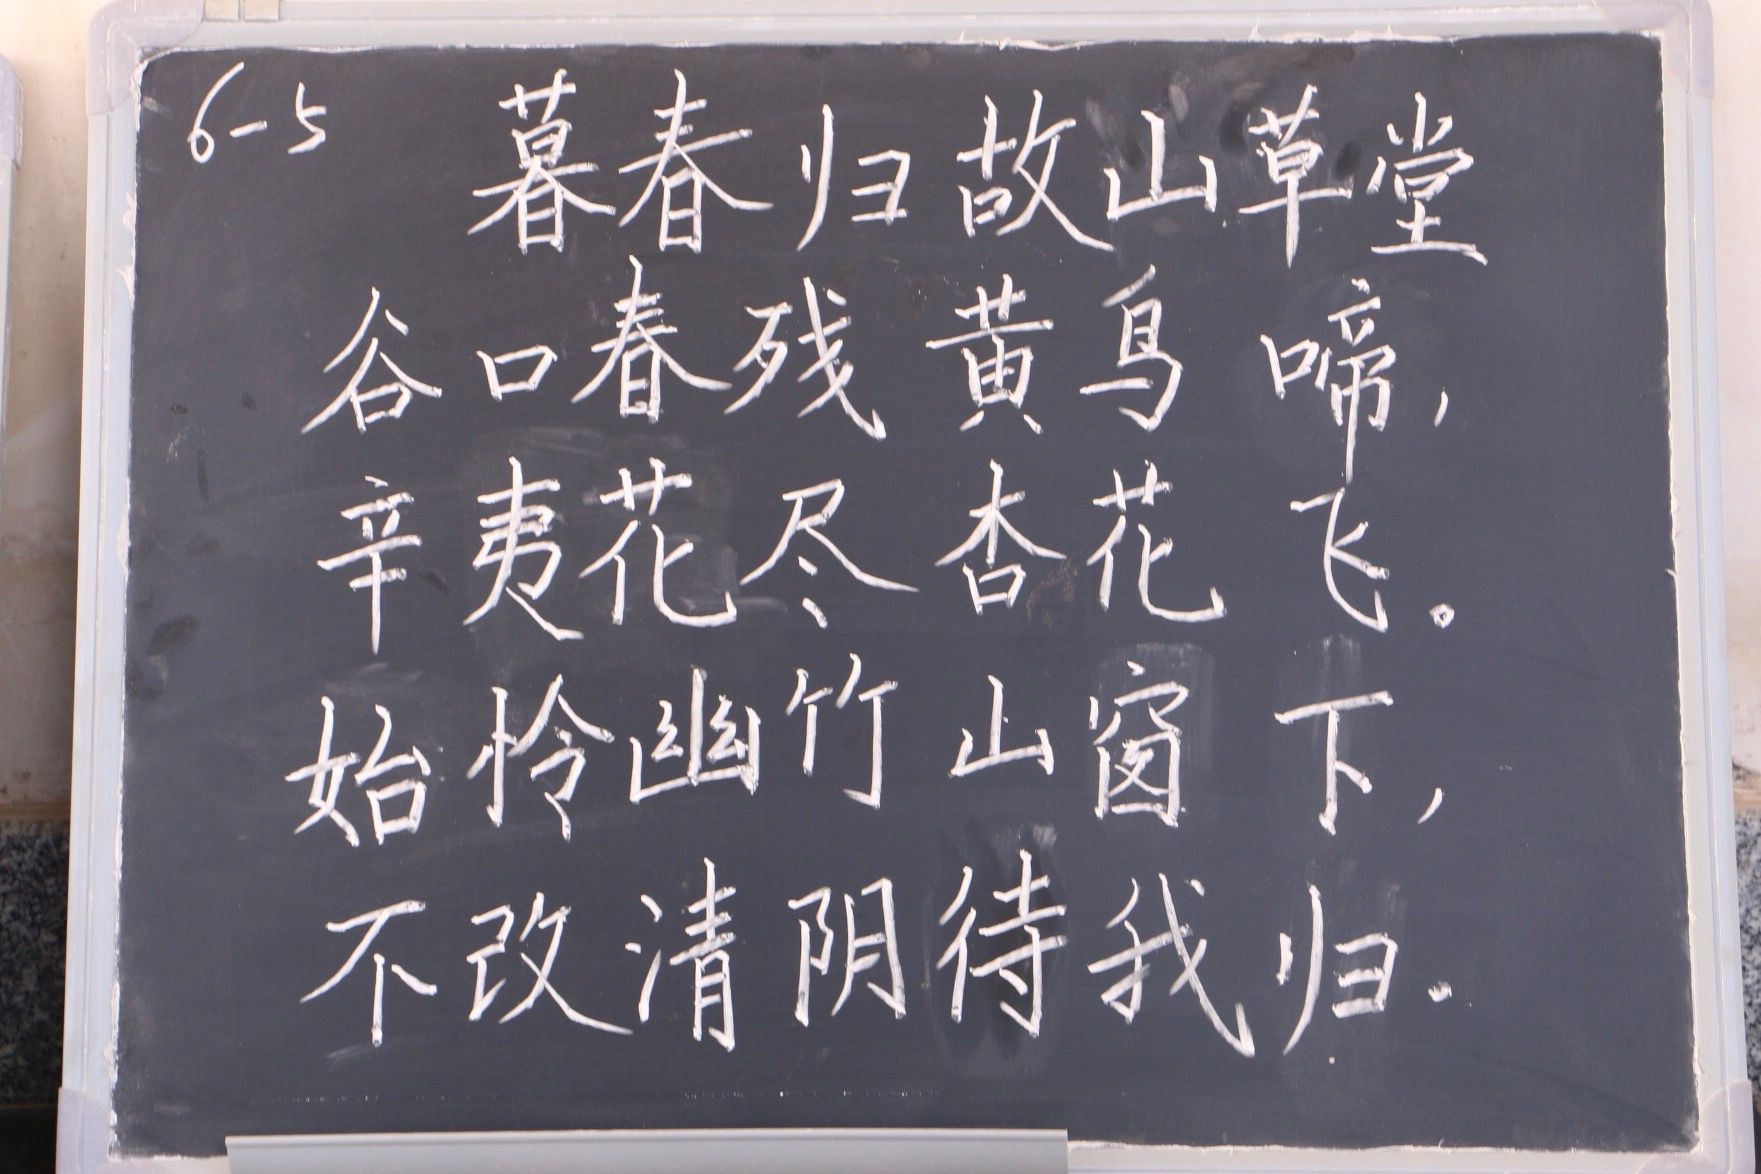 6-5 暮春归故山草堂
谷口春残黄鸟啼,
辛夷花尽杏花飞。
始怜幽竹山窗下,
不改清阴待我归.